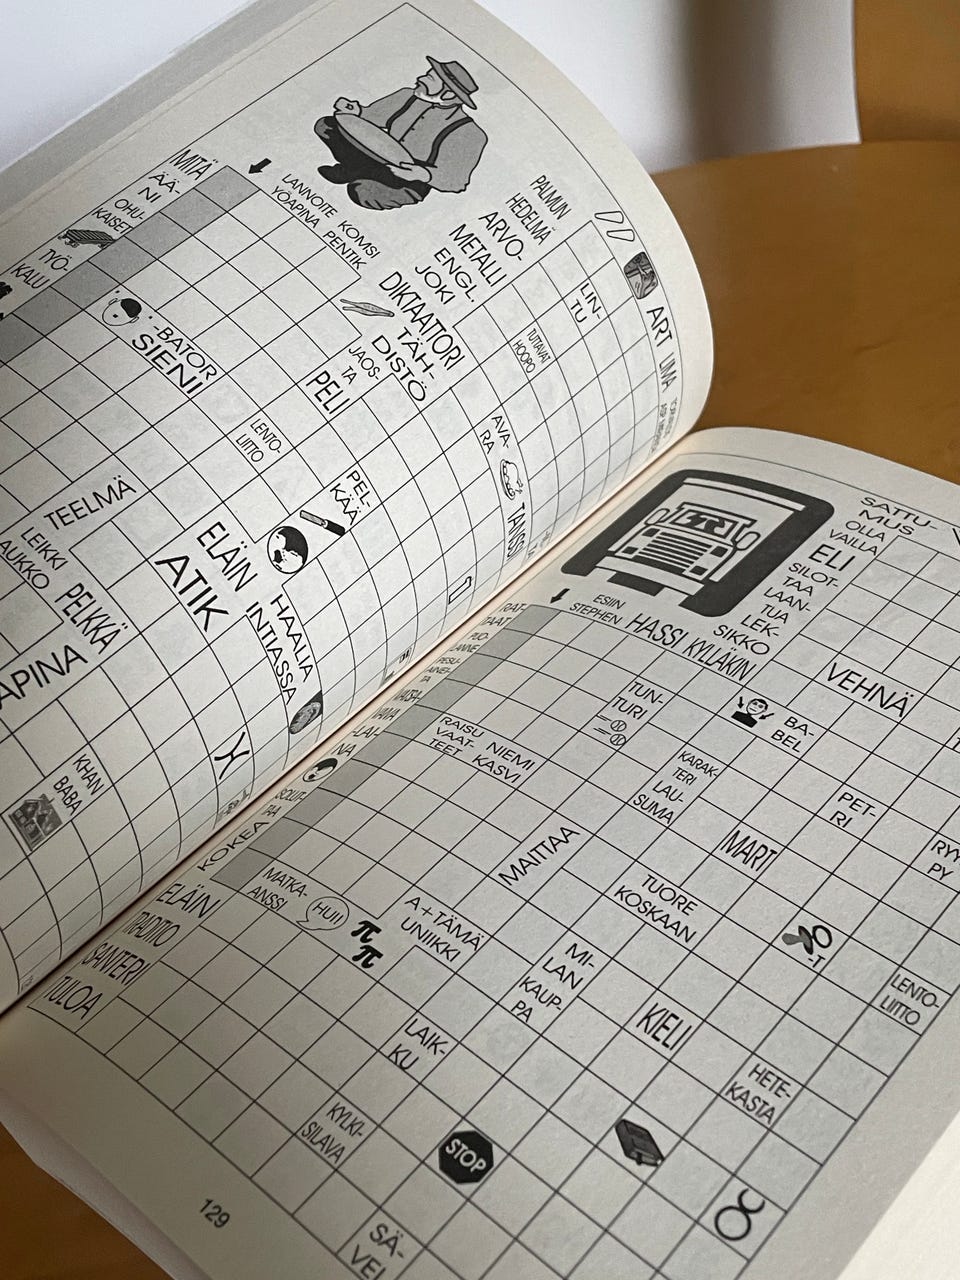 MITÄ
ÄÄ-
NI
OHU-
KAISET
TYÖ-
KALU
LANNOITE
YÖAPINA
KOMSI
PENTIK
PALMUN
HEDELMÄ
ARVO-
METALLI
ENGL.
JOKI
DIKTAATTORI
TÄH-
DISTÖ
JAOS-
TA
PELI
LIN-
TU
TUTTAVAT
HOOPO
ART
LIMA
-BATOR
SIENI
LENTO-
LIITTO
AVA-
RA
TANSSI
PEL-
KÄÄ
TEELMÄ
LEIKKI
AUKKO
PELKKÄ
APINA
ELÄIN
ATIK
HAALIA
INTIASSA
KHAN
BABA
SATTU-
MUS
OLLA
VAILLA
ELI
SILOT-
TAA
LAAN-
TUA
LEK-
SIKKO
ESIIN
STEPHEN
HASSI
KYLLÄKIN
VEHNÄ
TUN-
TURI
BA-
BEL
RAISU
VAAT-
TEET
NIEMI
KASVI
KARAK-
TERI
LAU-
SUMA
PET-
RI
RYY
PY
MAITTAA
MART
TUORE
KOSKAAN
KOKEA
ELÄIN
TRADITIO
SANTERI
TULOA
MATKA-
ANSSI
HUI!
π
π
A+TÄMÄ
UNIIKKI
MI-
LAN
KAUP-
PA
-T
LENTO-
LIITTO
KIELI
LAIK-
KU
HETE-
KASTA
KYLKI-
SILAVA
STOP
SÄ-
VEL
129